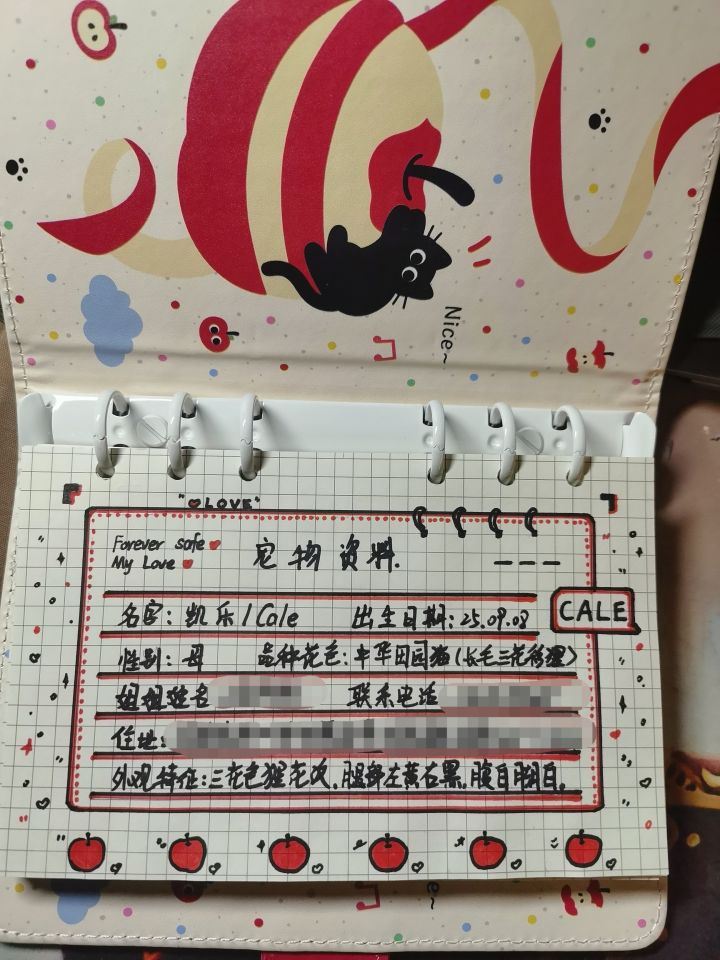 Nice~
"LOVE"
Forever safe
My Love
它物资料.
CALE
名字: 凯乐/Cale 出生日期: 25.09.08
性别: 母 品种花色: 中华田园猫(长毛三花狸)
姐姐姓名 联系电话
住址:
外观特征: 三花色狸花纹, 腿部左黄右黑, 腹白脚白.